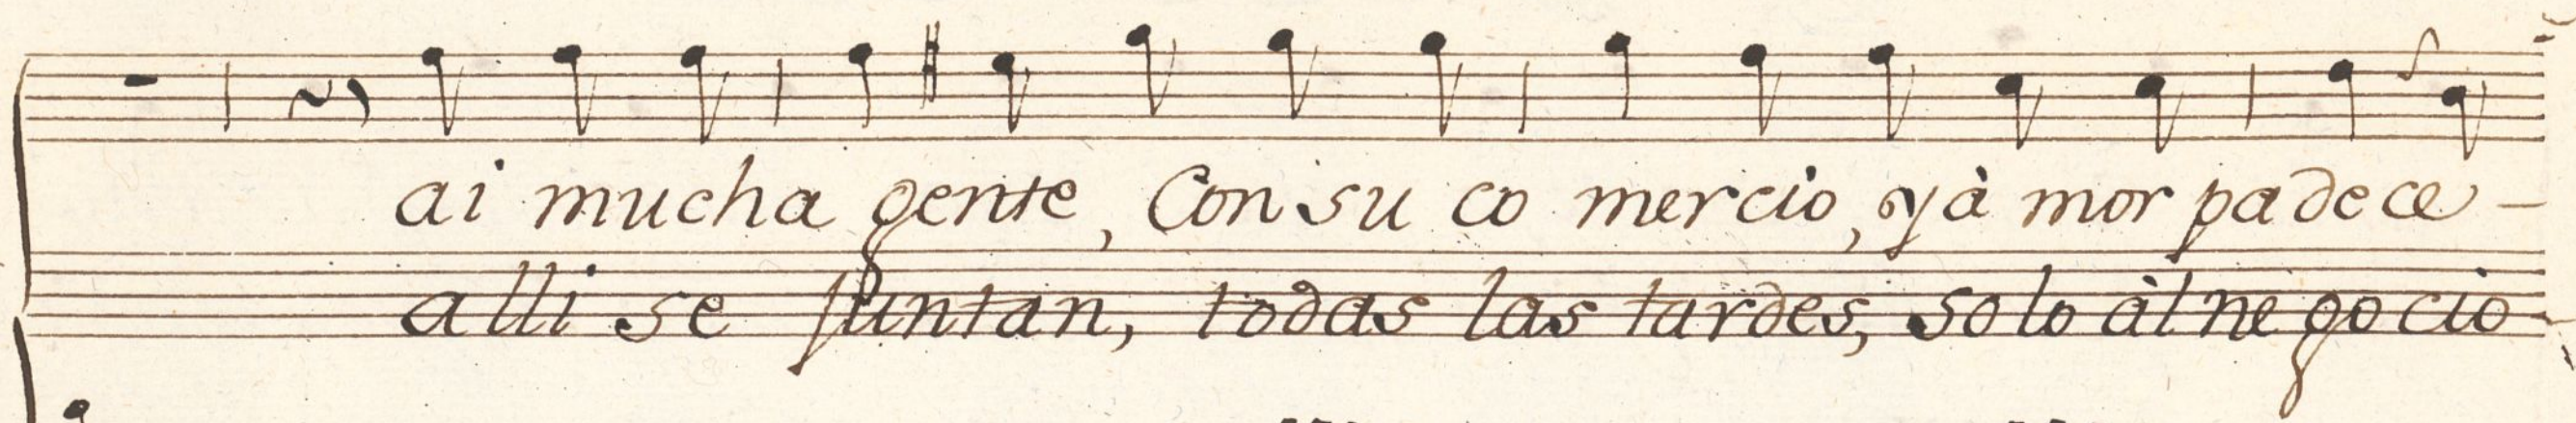 ai mucha gente, Con su co mercio, y à mor padece -
alli se juntan, todas las tardes, solo àl negocio